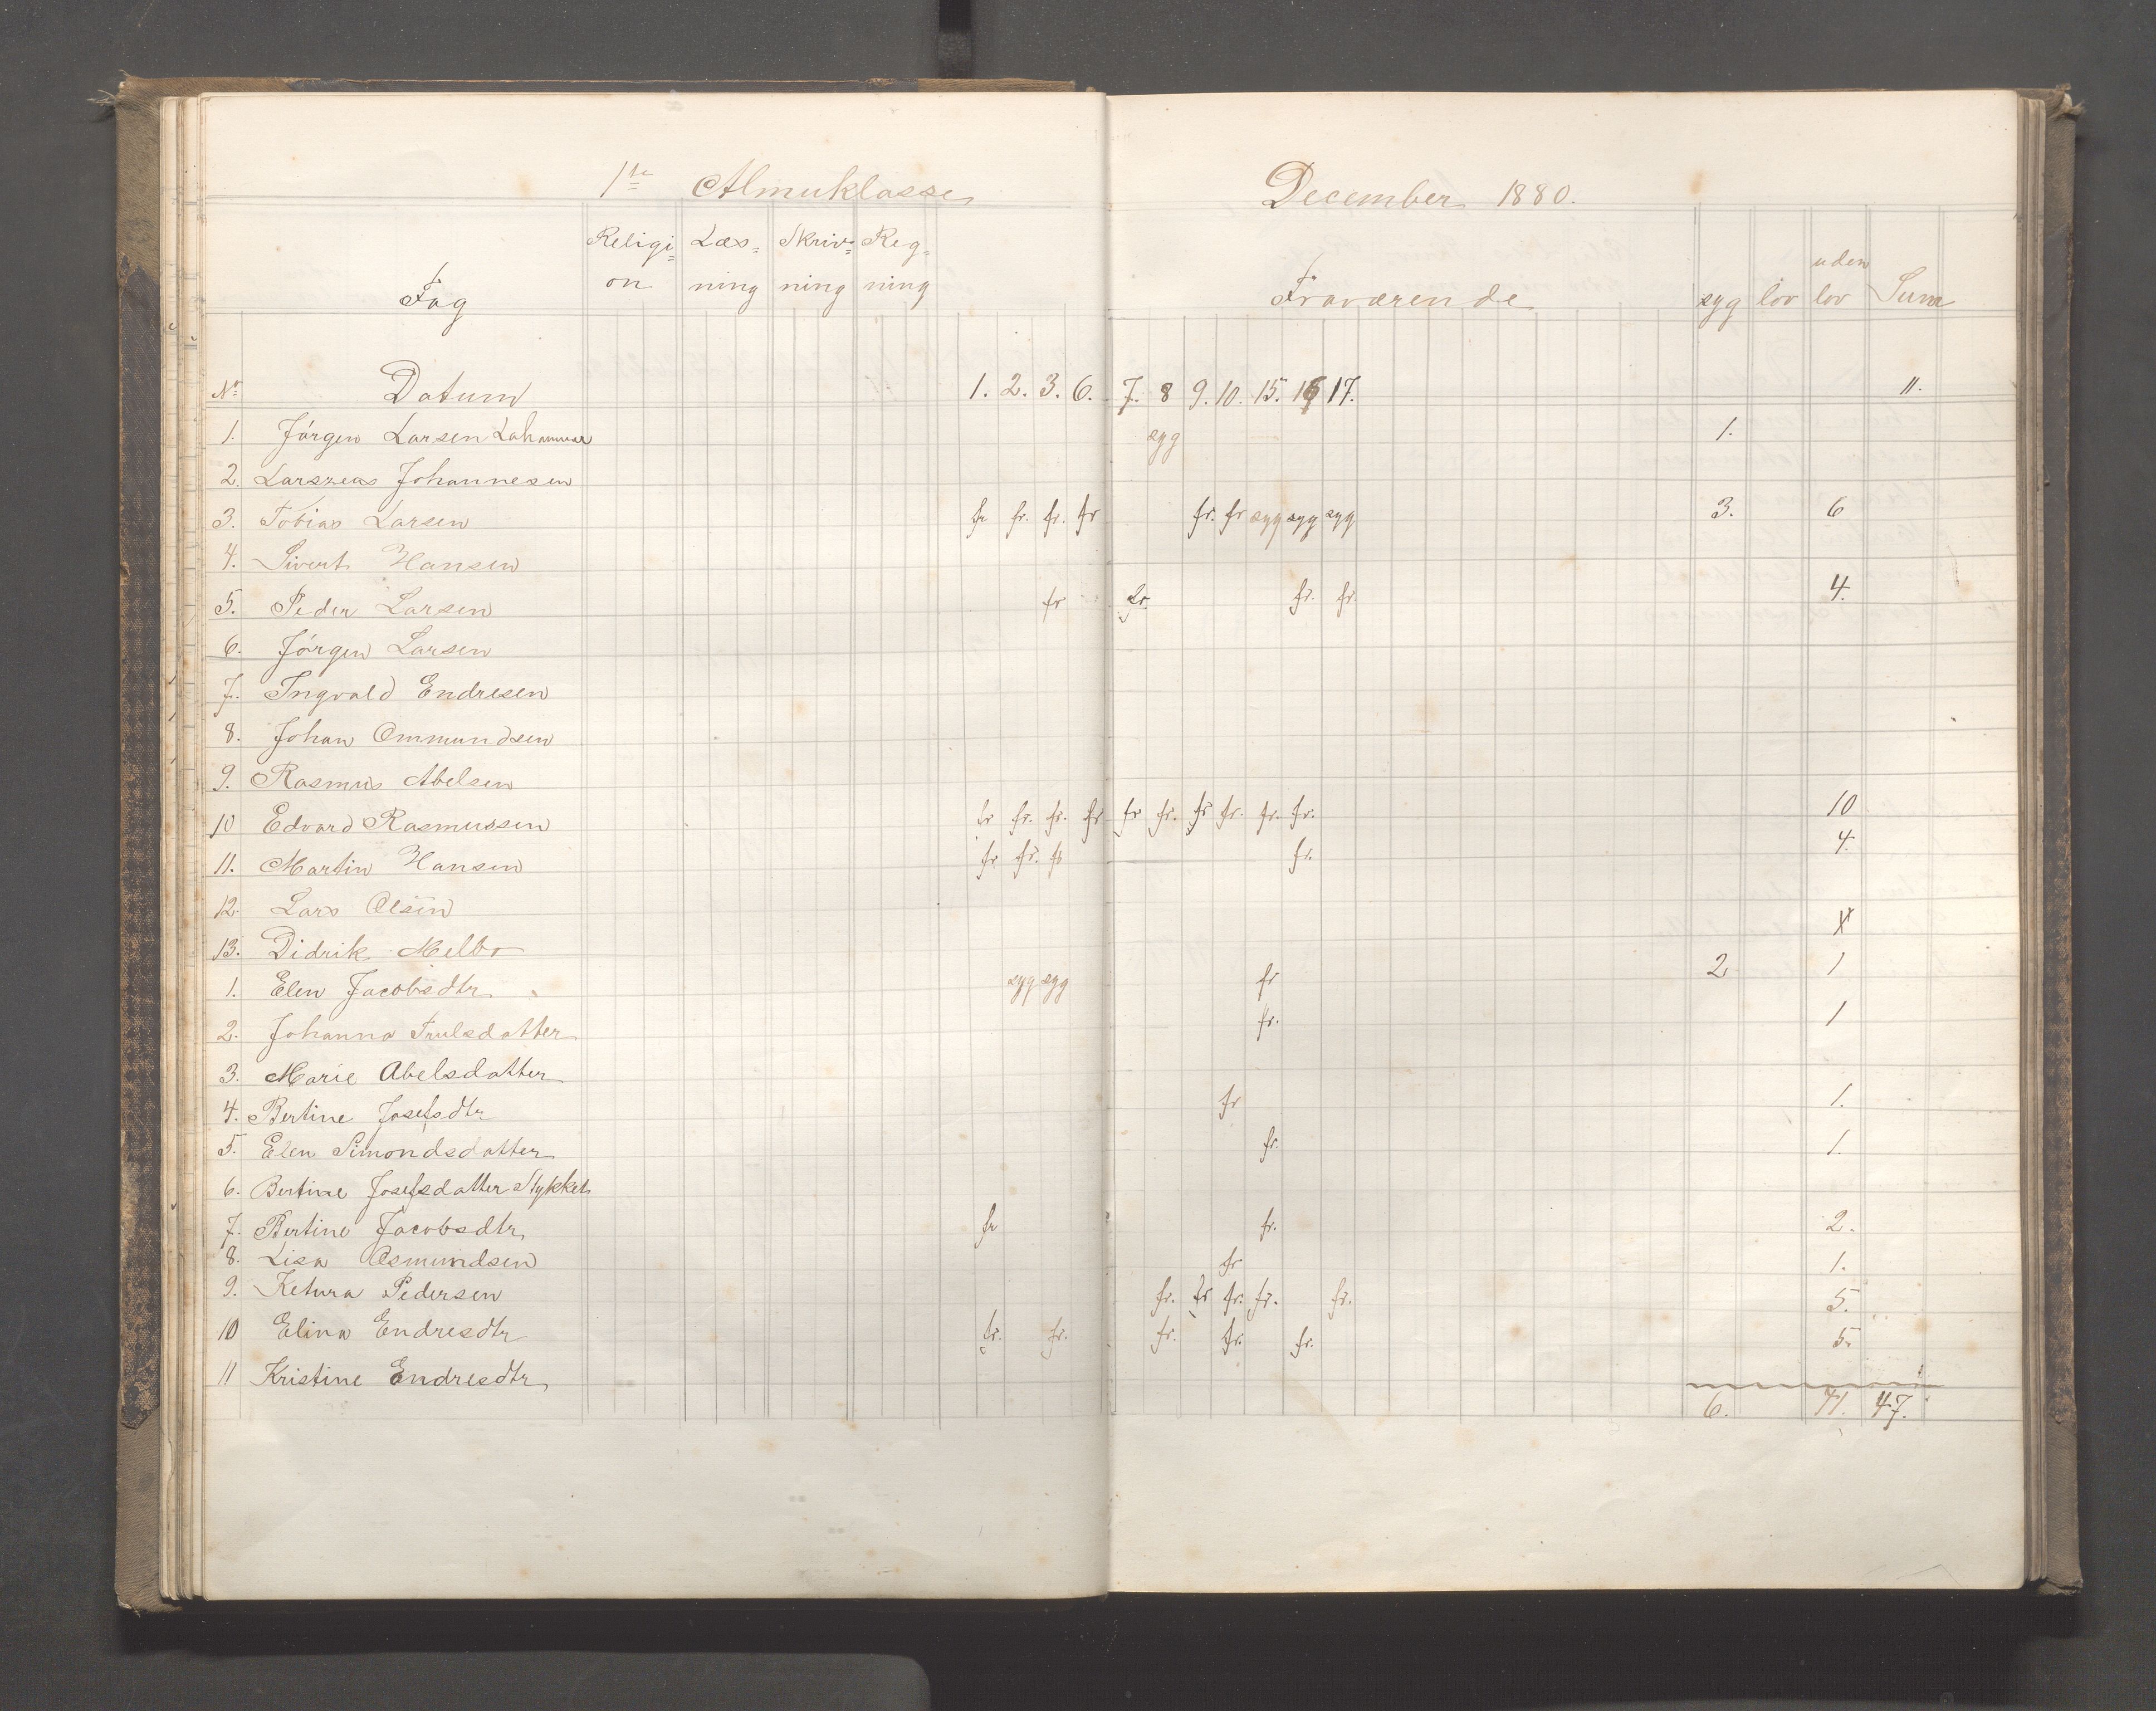 1ste Almuklasse December 1880.
Fag Religi= on Læs= ning Skriv= ning Reg= ning Fraværende syg lov uden lov Sum
No Datum 1. 2. 3. 6. 7. 8 9. 10. 15. 16 17. 11.
1. Jörgen Larsen syg 1.
2. Johannesen
3. Tobias Larsen fr fr. fr. fr fr. fr syg syg syg 3. 6
4. Sivert Hansen
5. Peder Larsen fr fr. fr. fr. 4.
6. Jörgen Larsen
7. Ingvald Endresen
8. Johan Ommundsen
9. Rasmus Abelsen
10 Edvard Rasmussen fr fr. fr. fr fr fr. fr fr. fr. fr. 10
11. Martin Hansen fr fr. fr fr. 4.
12. Lars Olsen
13. Didrik Melbo
1. Elen Jacobsdtr. syg syg fr 2. 1
2. Johanna Trulsdatter fr. 1
3. Marie Abelsdatter
4. Bertine Josefsdtr fr 1.
5. Elen Simondsdatter fr. 1.
6. Bertine Josefsdatter Stykket
7. Bertine Jacobsdtr. fr fr. 2.
8. Lisa Osmundsen fr 1.
9. Ketura Pedersen fr. fr fr. fr. fr. 5.
10 Elina Endresdtr fr. fr. fr. fr. fr. 5.
11 Kristine Endresdtr.
6. 41. 47.